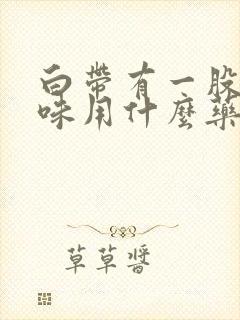 白帶有一股
味用什麼藥
草草醬